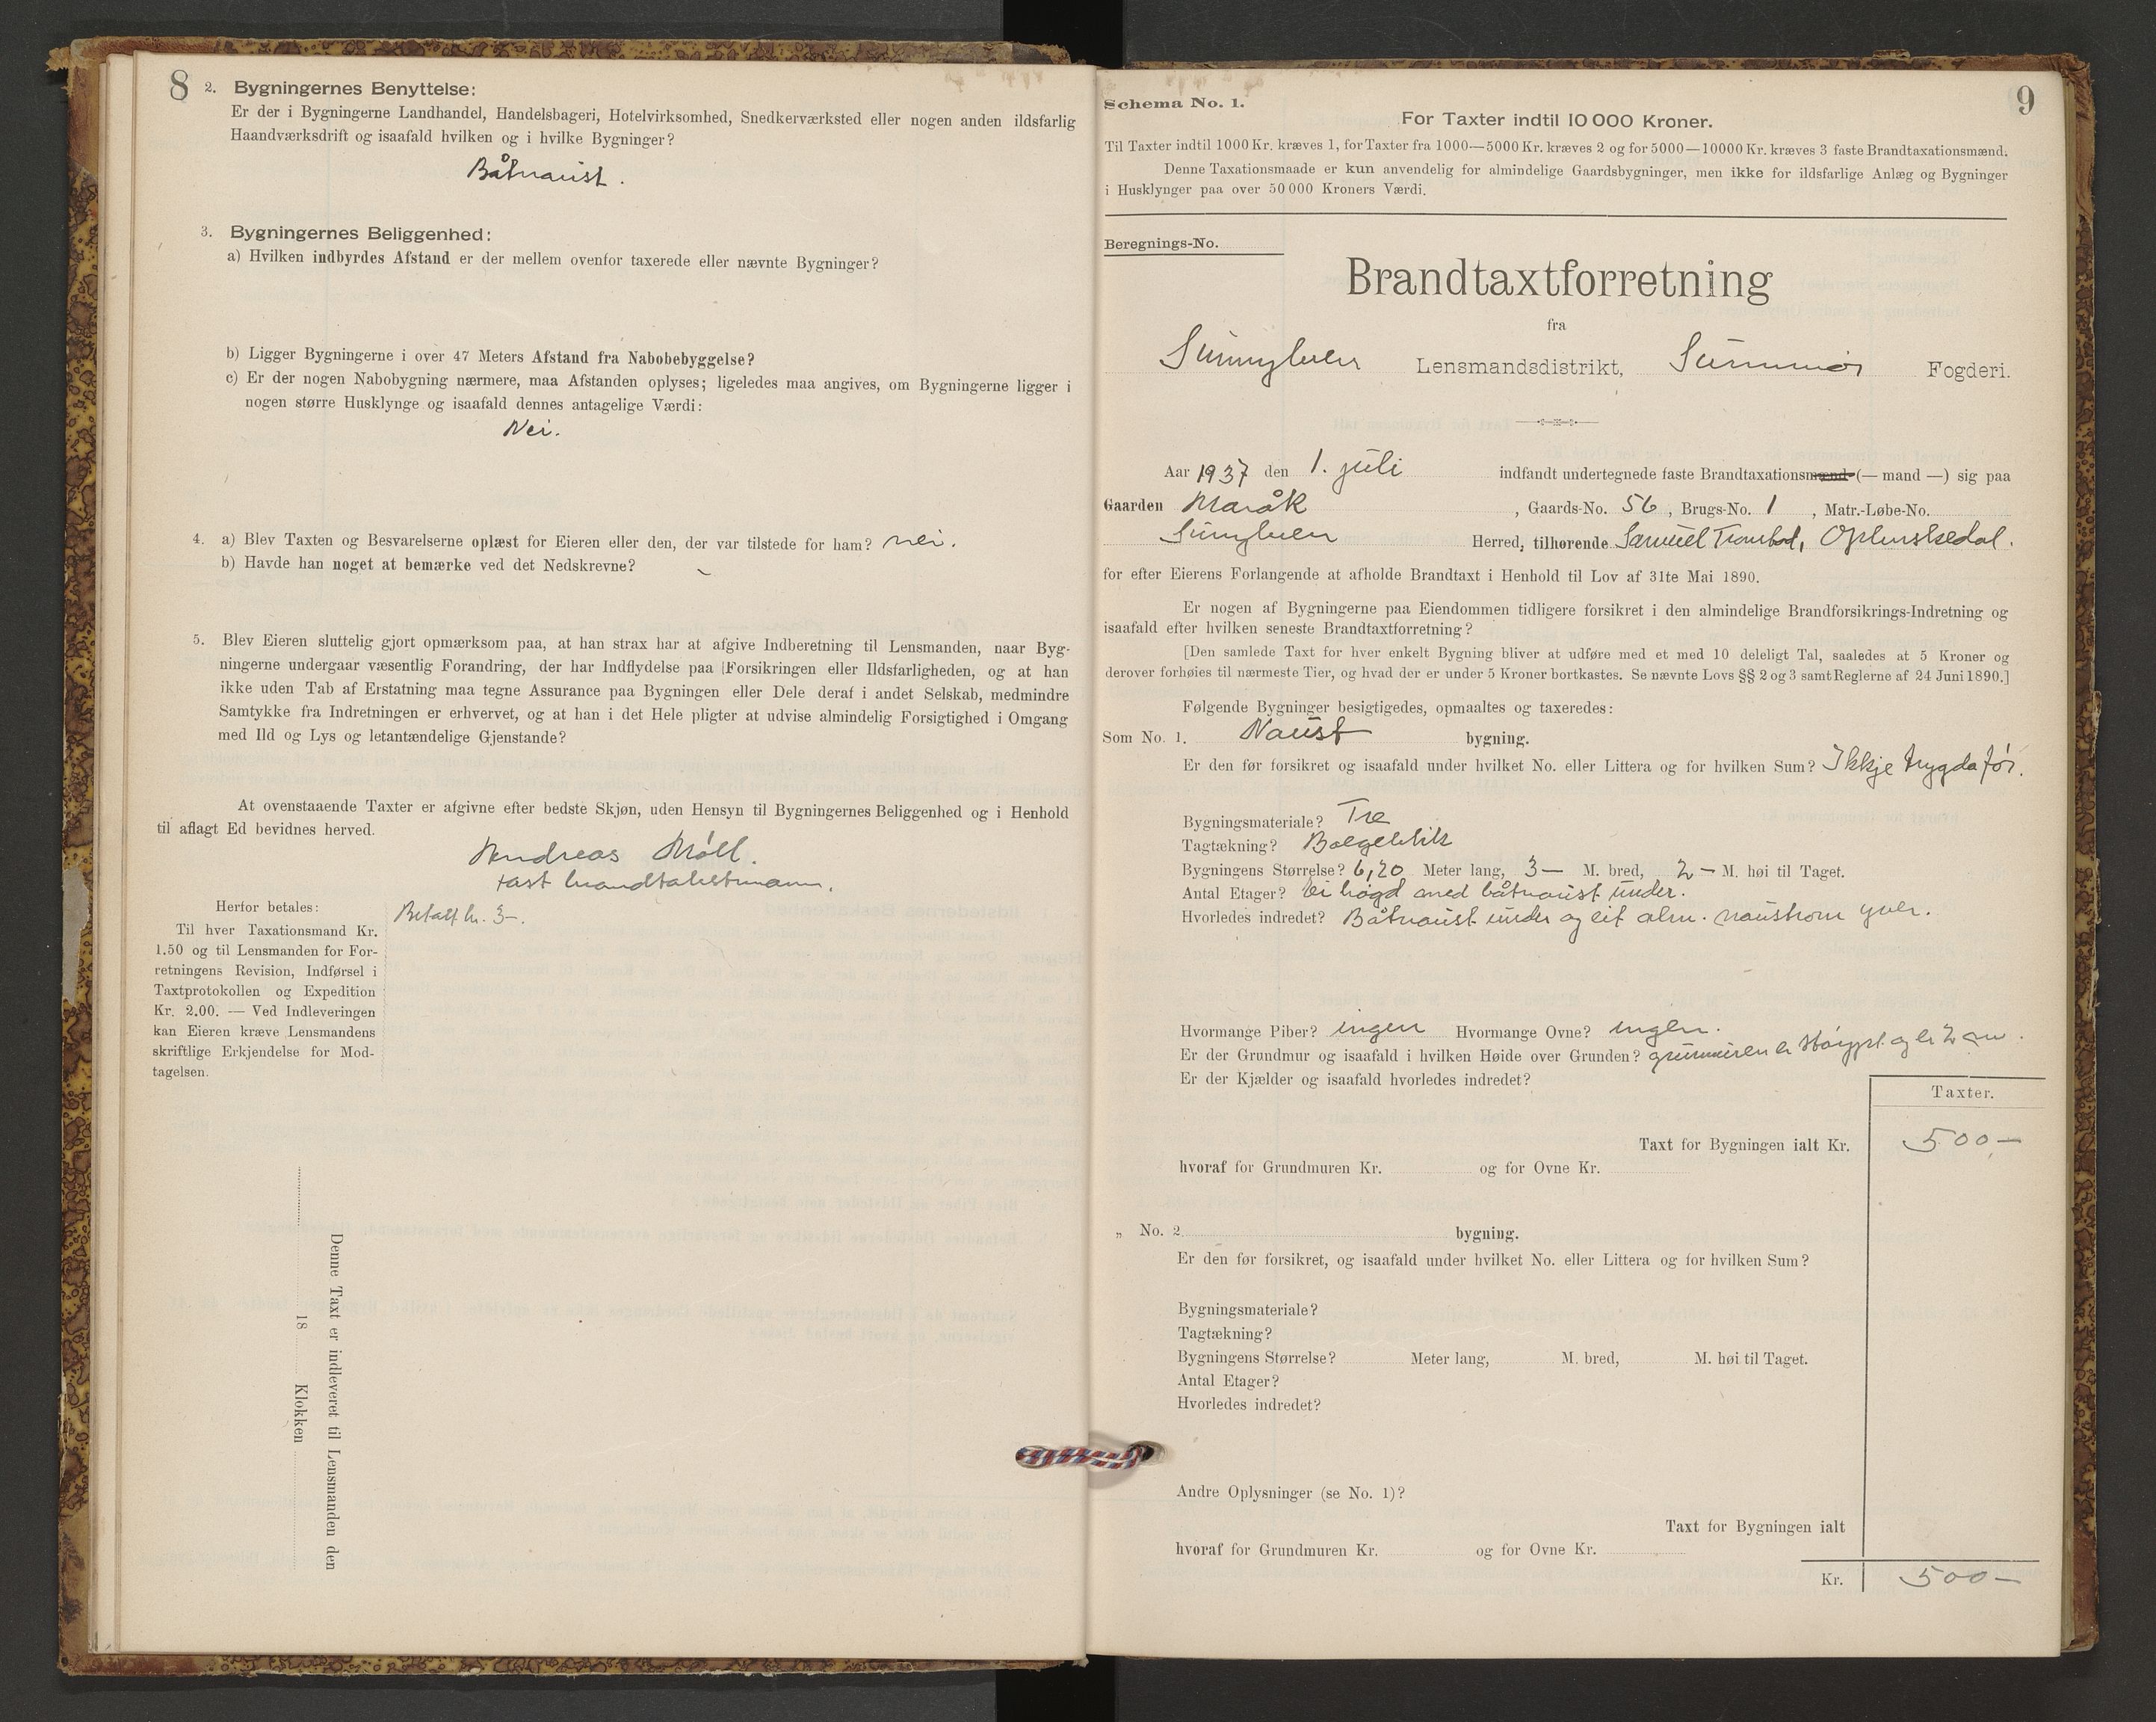 8
2. Bygningernes Benyttelse:
Er der i Bygningerne Landhandel, Handelsbageri, Hotelvirksomhed, Snedkerværksted eller nogen anden ildsfarlig
Haandværksdrift og isaafald hvilken og i hvilke Bygninger?
Båtnaust.
3. Bygningernes Beliggenhed:
a) Hvilken indbyrdes Afstand er der mellem ovenfor taxerede eller nævnte Bygninger?
b) Ligger Bygningerne i over 47 Meters Afstand fra Nabobebyggelse?
c) Er der nogen Nabobygning nærmere, maa Afstanden oplyses; ligeledes maa angives, om Bygningerne ligger i
nogen større Husklynge og isaafald dennes antagelige Værdi:
Nei.
4. a) Blev Taxten og Besvarelserne oplæst for Eieren eller den, der var tilstede for ham? nei.
b) Havde han noget at bemærke ved det Nedskrevne?
5. Blev Eieren sluttelig gjort opmærksom paa, at han strax har at afgive Indberetning til Lensmanden, naar Byg-
ningerne undergaar væsentlig Forandring, der har Indflydelse paa Forsikringen eller Ildsfarligheden, og at han
ikke uden Tab af Erstatning maa tegne Assurance paa Bygningen eller Dele deraf i andet Selskab, medmindre
Samtykke fra Indretningen er erhvervet, og at han i det Hele pligter at udvise almindelig Forsigtighed i Omgang
med Ild og Lys og letantændelige Gjenstande?
At ovenstaaende Taxter er afgivne efter bedste Skjøn, uden Hensyn til Bygningernes Beliggenhed og i Henhold
til aflagt Ed bevidnes herved.
Andreas Møll.
fast brandtakstmann.
Herfor betales:
Til hver Taxationsmand Kr.
1.50 og til Lensmanden for For-
retningens Revision, Indførsel i
Taxtprotokollen og Expedition
Kr. 2.00. — Ved Indleveringen
kan Eieren kræve Lensmandens
skriftlige Erkjendelse for Mod-
tagelsen.
Betalt kr. 3-.
Denne Taxt er indleveret til Lensmanden den
18 Klokken
9
Schema No. 1.
For Taxter indtil 10 000 Kroner.
Til Taxter indtil 1000 Kr. kræves 1, for Taxter fra 1000—5000 Kr. kræves 2 og for 5000—10000 Kr. kræves 3 faste Brandtaxationsmænd.
Denne Taxationsmaade er kun anvendelig for almindelige Gaardsbygninger, men ikke for ildsfarlige Anlæg og Bygninger
i Husklynger paa over 50 000 Kroners Værdi.
Beregnings-No.
Brandtaxtforretning
fra
Sunnylven Lensmandsdistrikt, Sunnmør Fogderi.
Aar 1937 den 1. juli indfandt undertegnede faste Brandtaxationsmænd (— mand —) sig paa
Gaarden Maråk, Gaards-No. 56, Brugs-No. 1, Matr.-Løbe-No.
Sunylven Herred, tilhørende Samuel
for efter Eierens Forlangende at afholde Brandtaxt i Henhold til Lov af 31te Mai 1890.
Er nogen af Bygningerne paa Eiendommen tidligere forsikret i den almindelige Brandforsikrings-Indretning og
isaafald efter hvilken seneste Brandtaxtforretning?
[Den samlede Taxt for hver enkelt Bygning bliver at udføre med et med 10 deleligt Tal, saaledes at 5 Kroner og
derover forhøies til nærmeste Tier, og hvad der er under 5 Kroner bortkastes. Se nævnte Lovs §§ 2 og 3 samt Reglerne af 24 Juni 1890.]
Følgende Bygninger besigtigedes, opmaaltes og taxeredes:
Som No. 1. Naust bygning.
Er den før forsikret og isaafald under hvilket No. eller Littera og for hvilken Sum? Ikkje trygda før.
Bygningsmateriale? Tre
Tagtækning? Bølgeblikk
Bygningens Størrelse? 6,20 Meter lang, 3— M. bred, 2— M. høi til Taget.
Antal Etager? Ei høgd med båtnaust under.
Hvorledes indredet? Båtnaust under og eit alm. naustrom yver.
Hvormange Piber? ingen Hvormange Ovne? ingen.
Er der Grundmur og isaafald i hvilken Høide over Grunden? grunmuren er støypt og er 2 m.
Er der Kjælder og isaafald hvorledes indredet?
Taxter.
Taxt for Bygningen ialt Kr. 500,—
hvoraf for Grundmuren Kr. og for Ovne Kr.
„ No. 2 bygning.
Er den før forsikret, og isaafald under hvilket No. eller Littera og for hvilken Sum?
Bygningsmateriale?
Tagtækning?
Bygningens Størrelse? Meter lang, M. bred, M. høi til Taget.
Antal Etager?
Hvorledes indredet?
Andre Oplysninger (se No. 1)?
Taxt for Bygningen ialt
hvoraf for Grundmuren Kr. og for Ovne Kr.
Kr. 500—